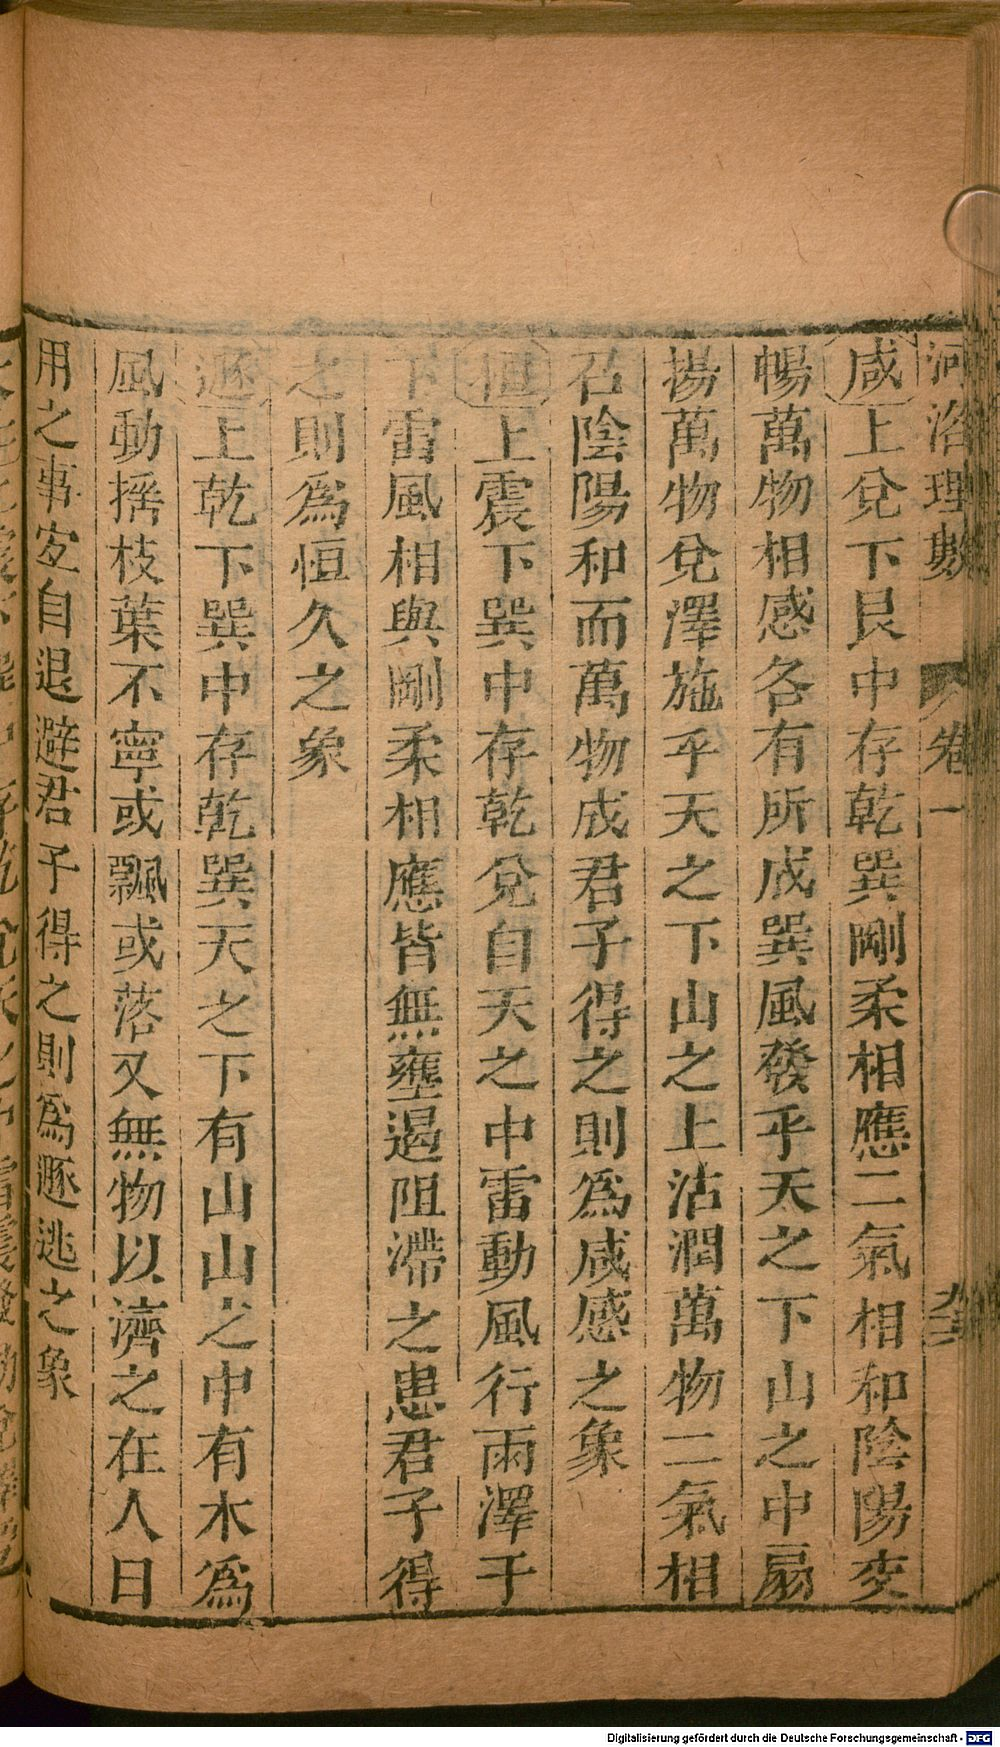 河洛理數 卷一
咸上兌下艮中存乾巽剛柔相應二氣相和陰陽交
暢萬物相感各有所成巽風發乎天之下山之中扇
揚萬物兌澤施乎天之下山之上沾潤萬物二氣相
召陰陽和而萬物成君子得之則爲咸感之象
恒上震下巽中存乾兌自天之中雷動風行雨澤于
下雷風相與剛柔相應皆無壅遏阻滯之患君子得
之則爲恒久之象
遯上乾下巽中存乾巽天之下有山山之中有木爲
風動搖枝葉不寧或飄或落又無物以濟之在人日
用之事宐自退避君子得之則爲遯逃之象
Digitalisierung gefördert durch die Deutsche Forschungsgemeinschaft - DFG